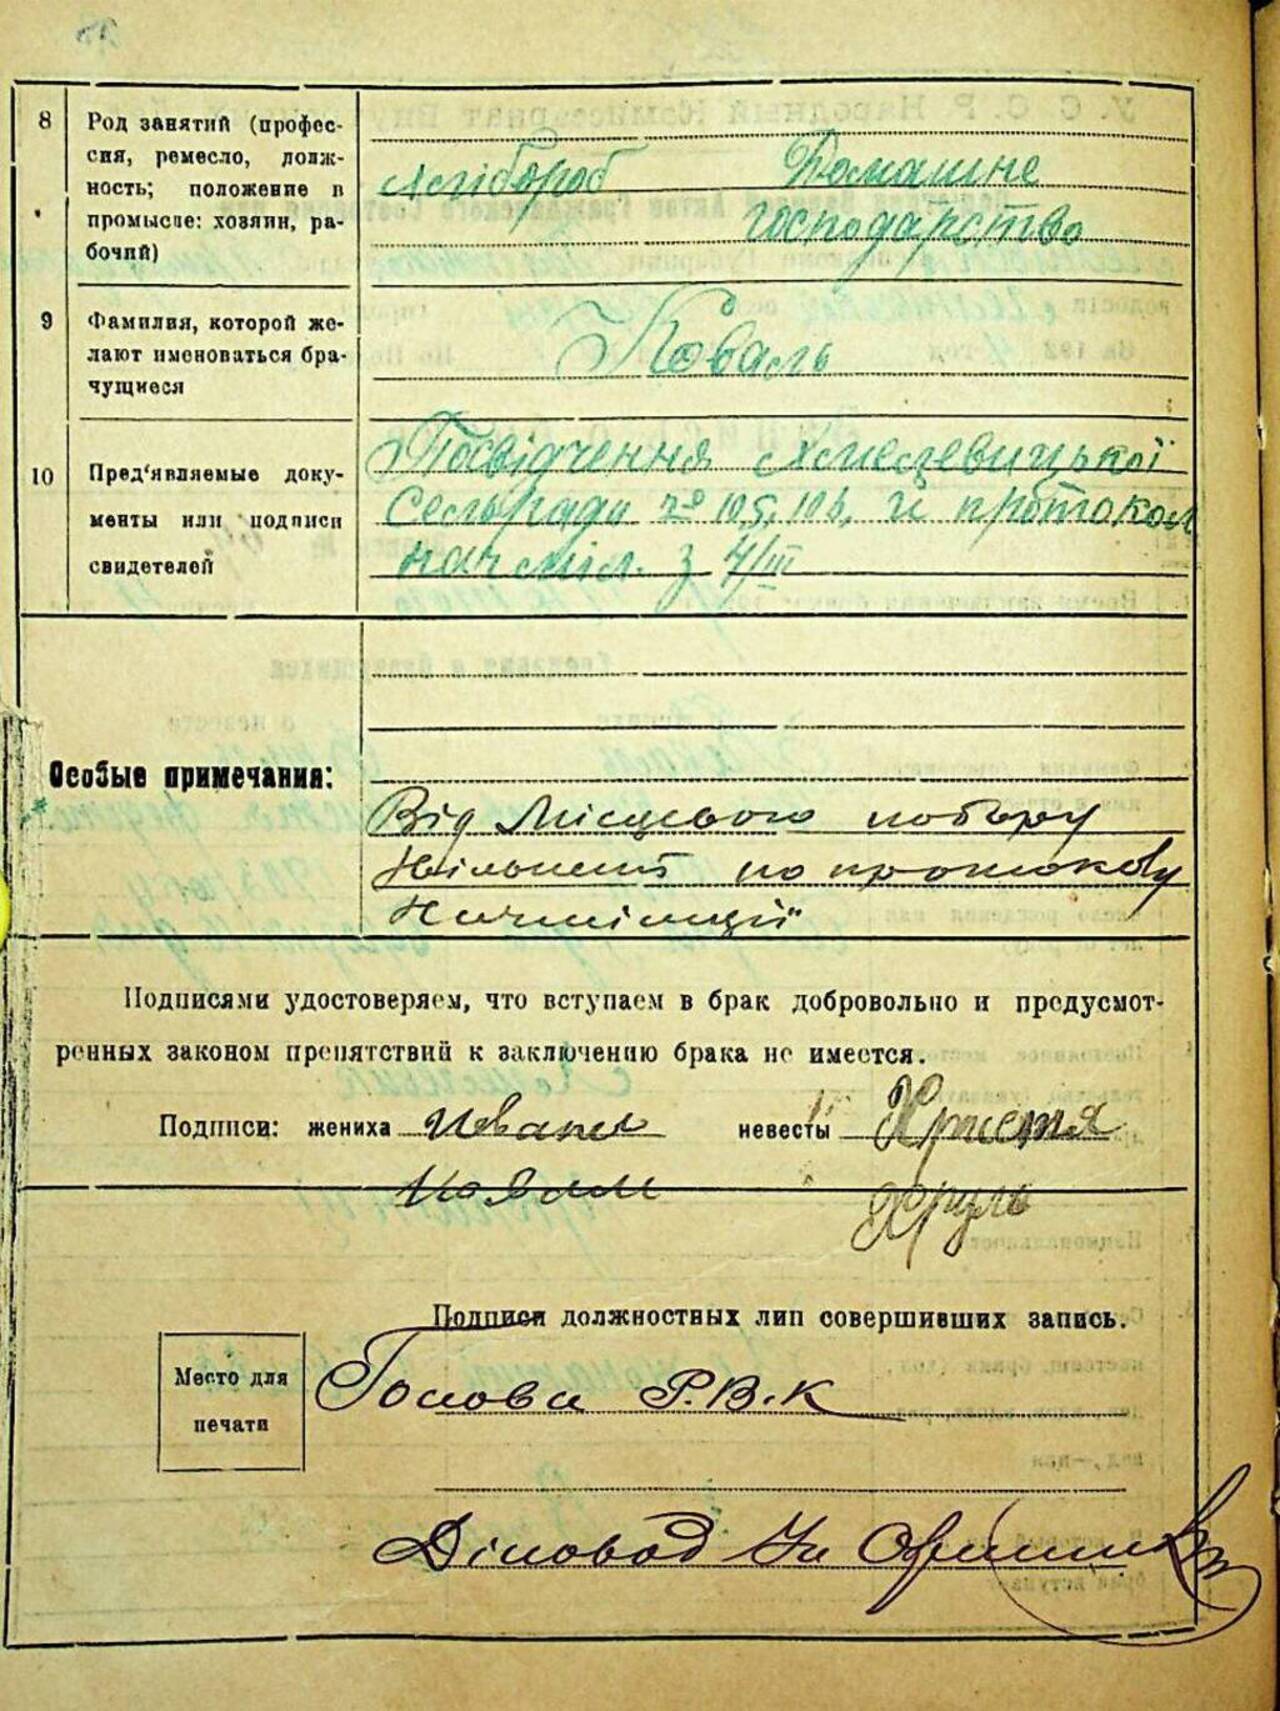 8
Род занятий (профес-
сия, ремесло, долж-
ность; положение в
промысле: хозяин, ра-
бочий)
Хлібороб Домашнє
господарство
9
Фамилия, которой же-
лают именоваться бра-
чущиеся
Коваль
10
Пред'являемые доку-
менты или подписи
свидетелей
Посвідчення Хмелевицької
Сельради № 105, 106, и протокол
нач міл. з 4/III
Особые примечания:
Від Місцевого побору
звільнені по протоколу
Начміліції
Подписями удостоверяем, что вступаем в брак добровольно и предусмот-
ренных законом препятствий к заключению брака не имеется.
Подписи: жениха Иван невесты Христя
Хруль
Подписи должностных лиц совершивших запись.
Место для
печати
Голова Р.В.К
Діловод